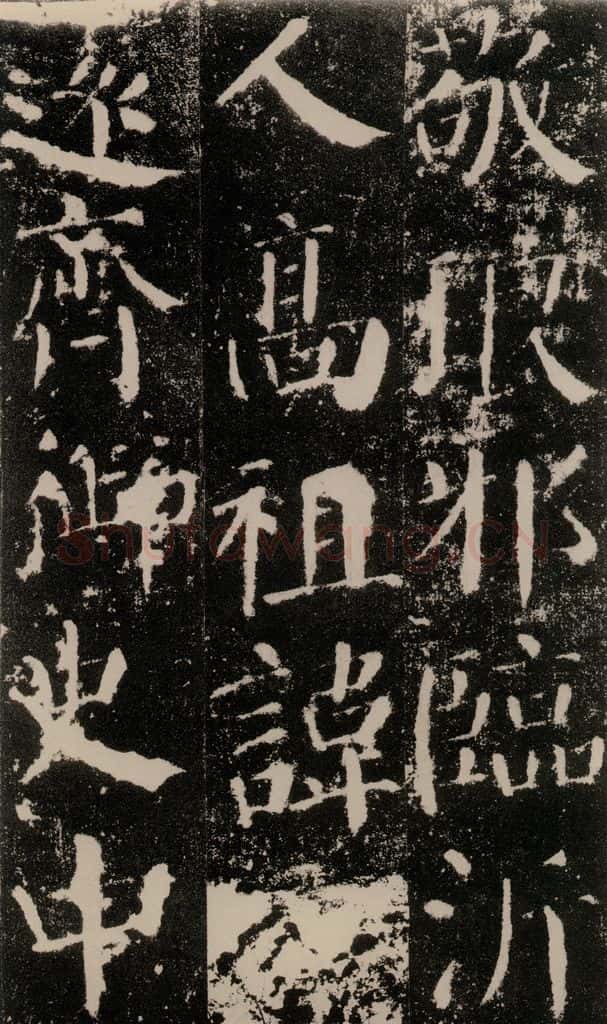 敬琅邪臨沂
人高祖諱
遠齊御史中
Shufawang.CN